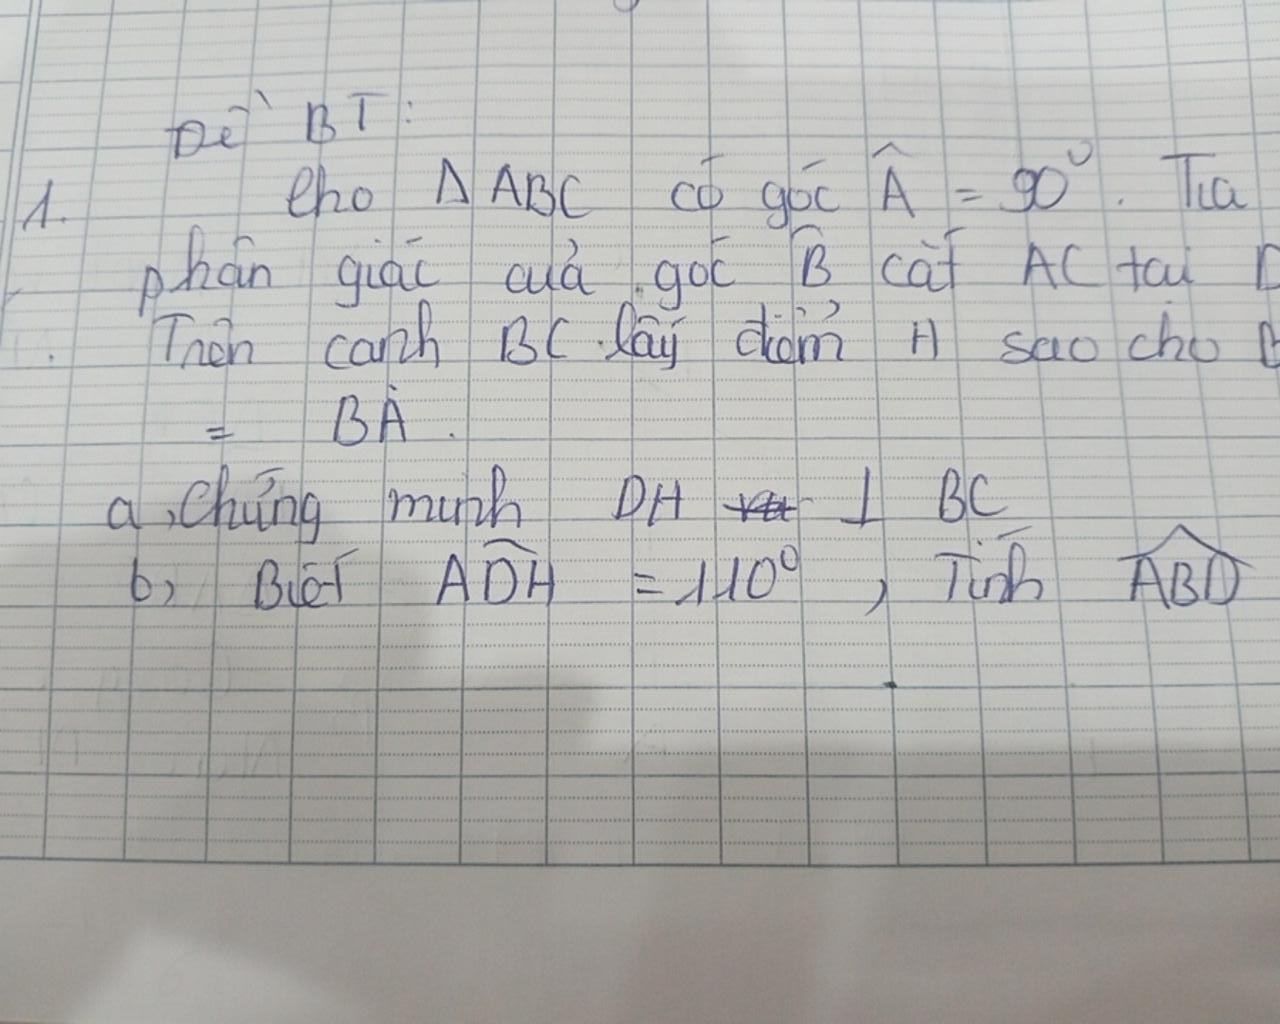 Đề BT:
1. Cho Δ ABC có góc Â = 90°. Tia
phân giác của góc B̂ cắt AC tại D
Trên cạnh BC lấy điểm H sao cho B
= BA.
a, Chứng minh DH ⊥ BC
b, Biết ADH = 110°, Tính ABD